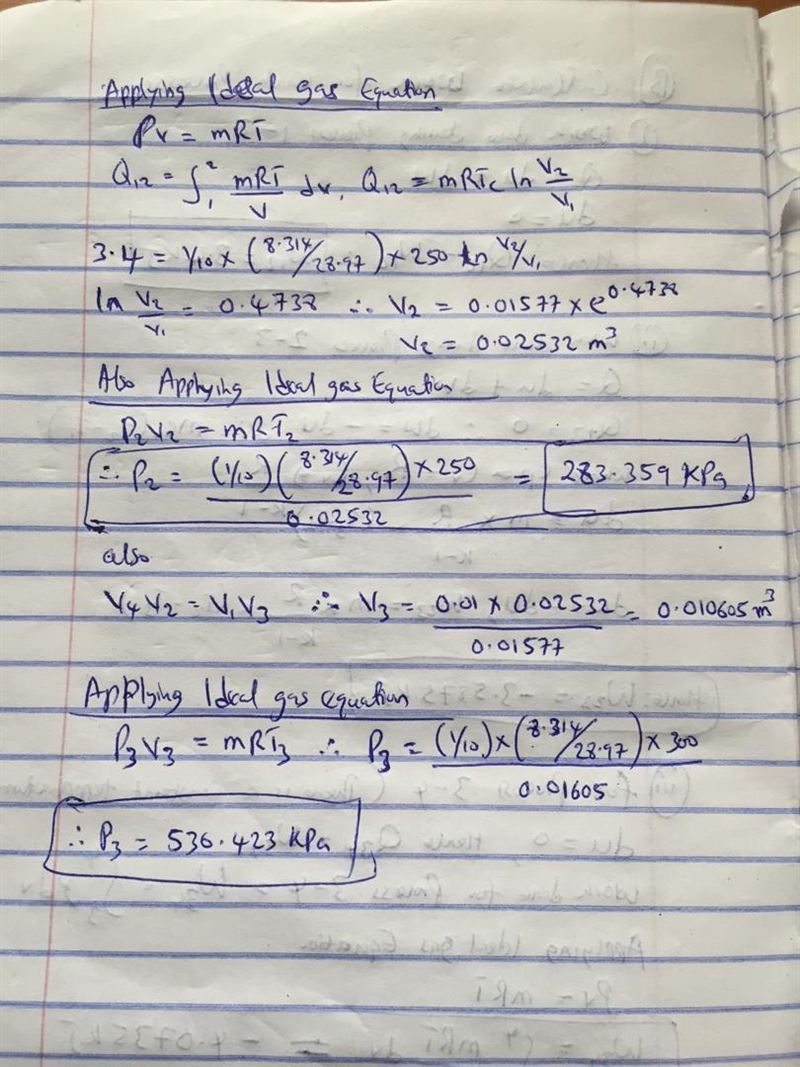 Applying Ideal gas Equation
Pv = mRT
Q₁₂ = ∫₁² mRT/V dv, Q₁₂ = mRTc ln V₂/V₁
3.14 = 1/10 × (8.314/28.97) × 250 ln V₂/V₁
ln V₂/V₁ = 0.4738 ∴ V₂ = 0.01577 × e^0.4738
V₂ = 0.02532 m³
Also Applying Ideal gas Equation
P₂V₂ = mRT₂
∴ P₂ = (1/10)(8.314/28.97) × 250 / 0.02532 = 283.359 KPa
also
V₄V₂ = V₁V₃ ∴ V₃ = 0.01 × 0.02532 / 0.01577 = 0.010605 m³
Applying Ideal gas equation
P₃V₃ = mRT₃ ∴ P₃ = (1/10) × (8.314/28.97) × 300 / 0.01605
∴ P₃ = 536.423 KPa